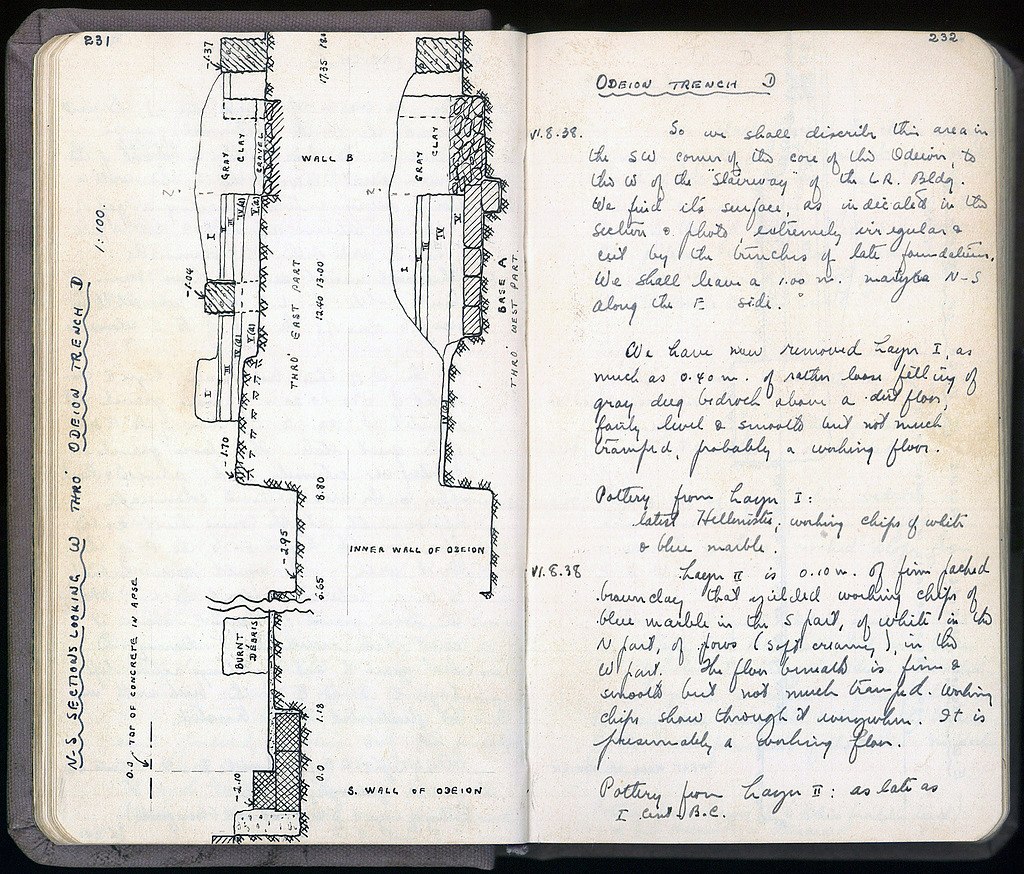 231
N-S SECTIONS LOOKING W THRO' ODEION TRENCH D
1:100.
0.0, TOP OF CONCRETE IN APSE
-1.37
GRAY CLAY
GRAVEL
I
III
IV(a)
V(a)
-1.04
I
III
IV(a)
V(a)
-1.70
-2.95
BURNT DÉBRIS
-2.10
17.35
WALL B
THRO' EAST PART
12.40 13.00
8.80
6.65
1.18
0.0
INNER WALL OF ODEION
S. WALL OF ODEION
GRAY CLAY
I
III
IV
V
BASE A
THRO' WEST PART
232
ODEION TRENCH D
VI.8.38.
So we shall describe this area in
the SW corner of the core of the Odeion, to
the W of the "stairway" of the L.R. Bldg.
We find its surface, as indicated in the
section & photo extremely irregular &
cut by the trenches of late foundations.
We shall leave a 1.00 m. martyra N-S
along the E side.
We have now removed Layer I, as
much as 0.40 m. of rather loose filling of
gray deg bedrock above a dirt floor,
fairly level & smooth but not much
tramped, probably a working floor.
Pottery from Layer I:
latest Hellenistic; working chips of white
& blue marble.
VI.8.38
Layer II is 0.10 m. of firm packed
brown clay that yielded working chips of
blue marble in the S part, of white in the
N part, of poros (soft creamy), in the
W part. The floor beneath is firm &
smooth but not much tramped. Working
chips show through it everywhere. It is
presumably a working floor.
Pottery from Layer II: as late as
I cent. B.C.